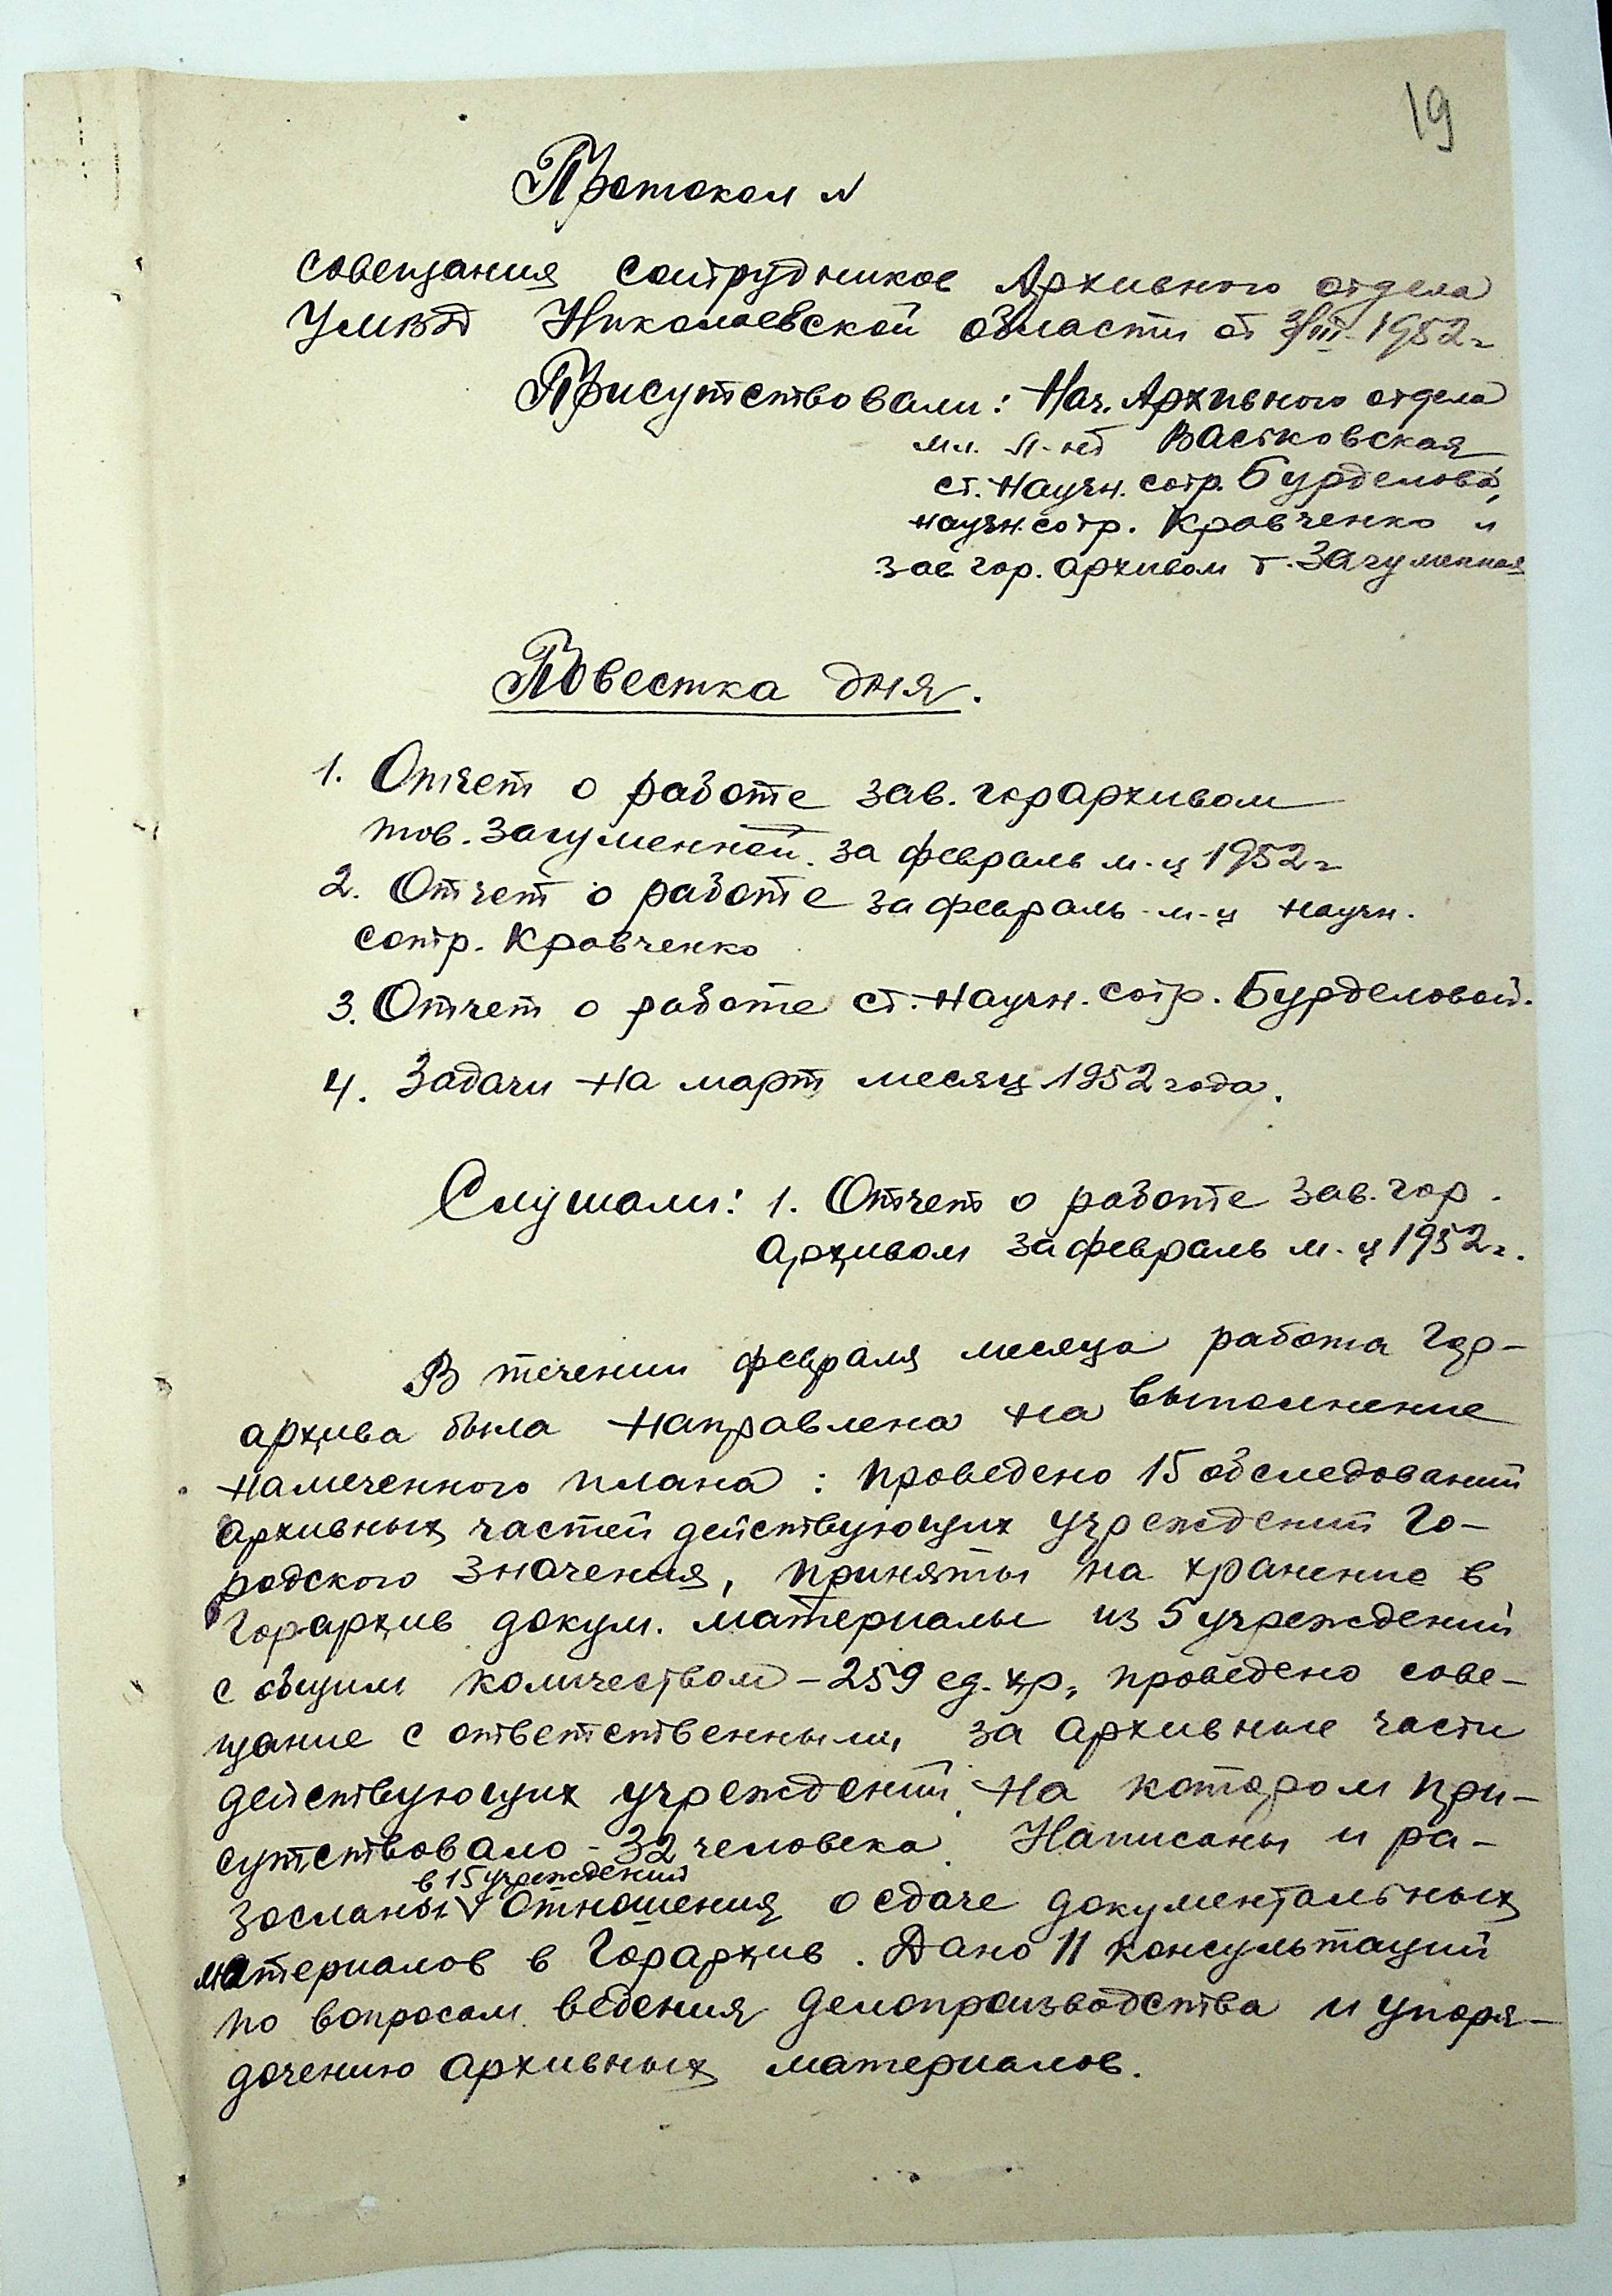 19
Протокол №
совещания сотрудников Архивного отдела
УМВД Николаевской области от 3/III-1952 г
Присутствовали: Нач. Архивного отдела
мл. л-нт Вастковская
ст. научн. сотр. Бурделова,
научн. сотр. Кравченко и
зав гор. архивом т. Загуменная
Повестка дня.
1. Отчет о работе зав. горархивом
тов. Загуменной за февраль м-ц 1952 г
2. Отчет о работе за февраль м-ц научн.
сотр. Кравченко
3. Отчет о работе ст. научн. сотр. Бурделовой.
4. Задачи на март месяц 1952 года.
Слушали: 1. Отчет о работе зав. гор.
архивом за февраль м-ц 1952 г.
В течении февраля месяца работа гор-
архива была направлена на выполнение
намеченного плана: проведено 15 обследований
архивных частей действующих учреждений го-
родского значения, приняты на хранение в
Горархив докум. материалы из 5 учреждений
с общим количеством - 259 ед. хр, проведено сове-
щание с ответственными за архивные части
действующих учреждений, на котором при-
сутствовало - 32 человека. Написаны и ра-
в 15 учреждений
зосланы отношения о сдаче документальных
материалов в Горархив. Дано 11 консультаций
по вопросам ведения делопроизводства и упоря-
дочению архивных материалов.